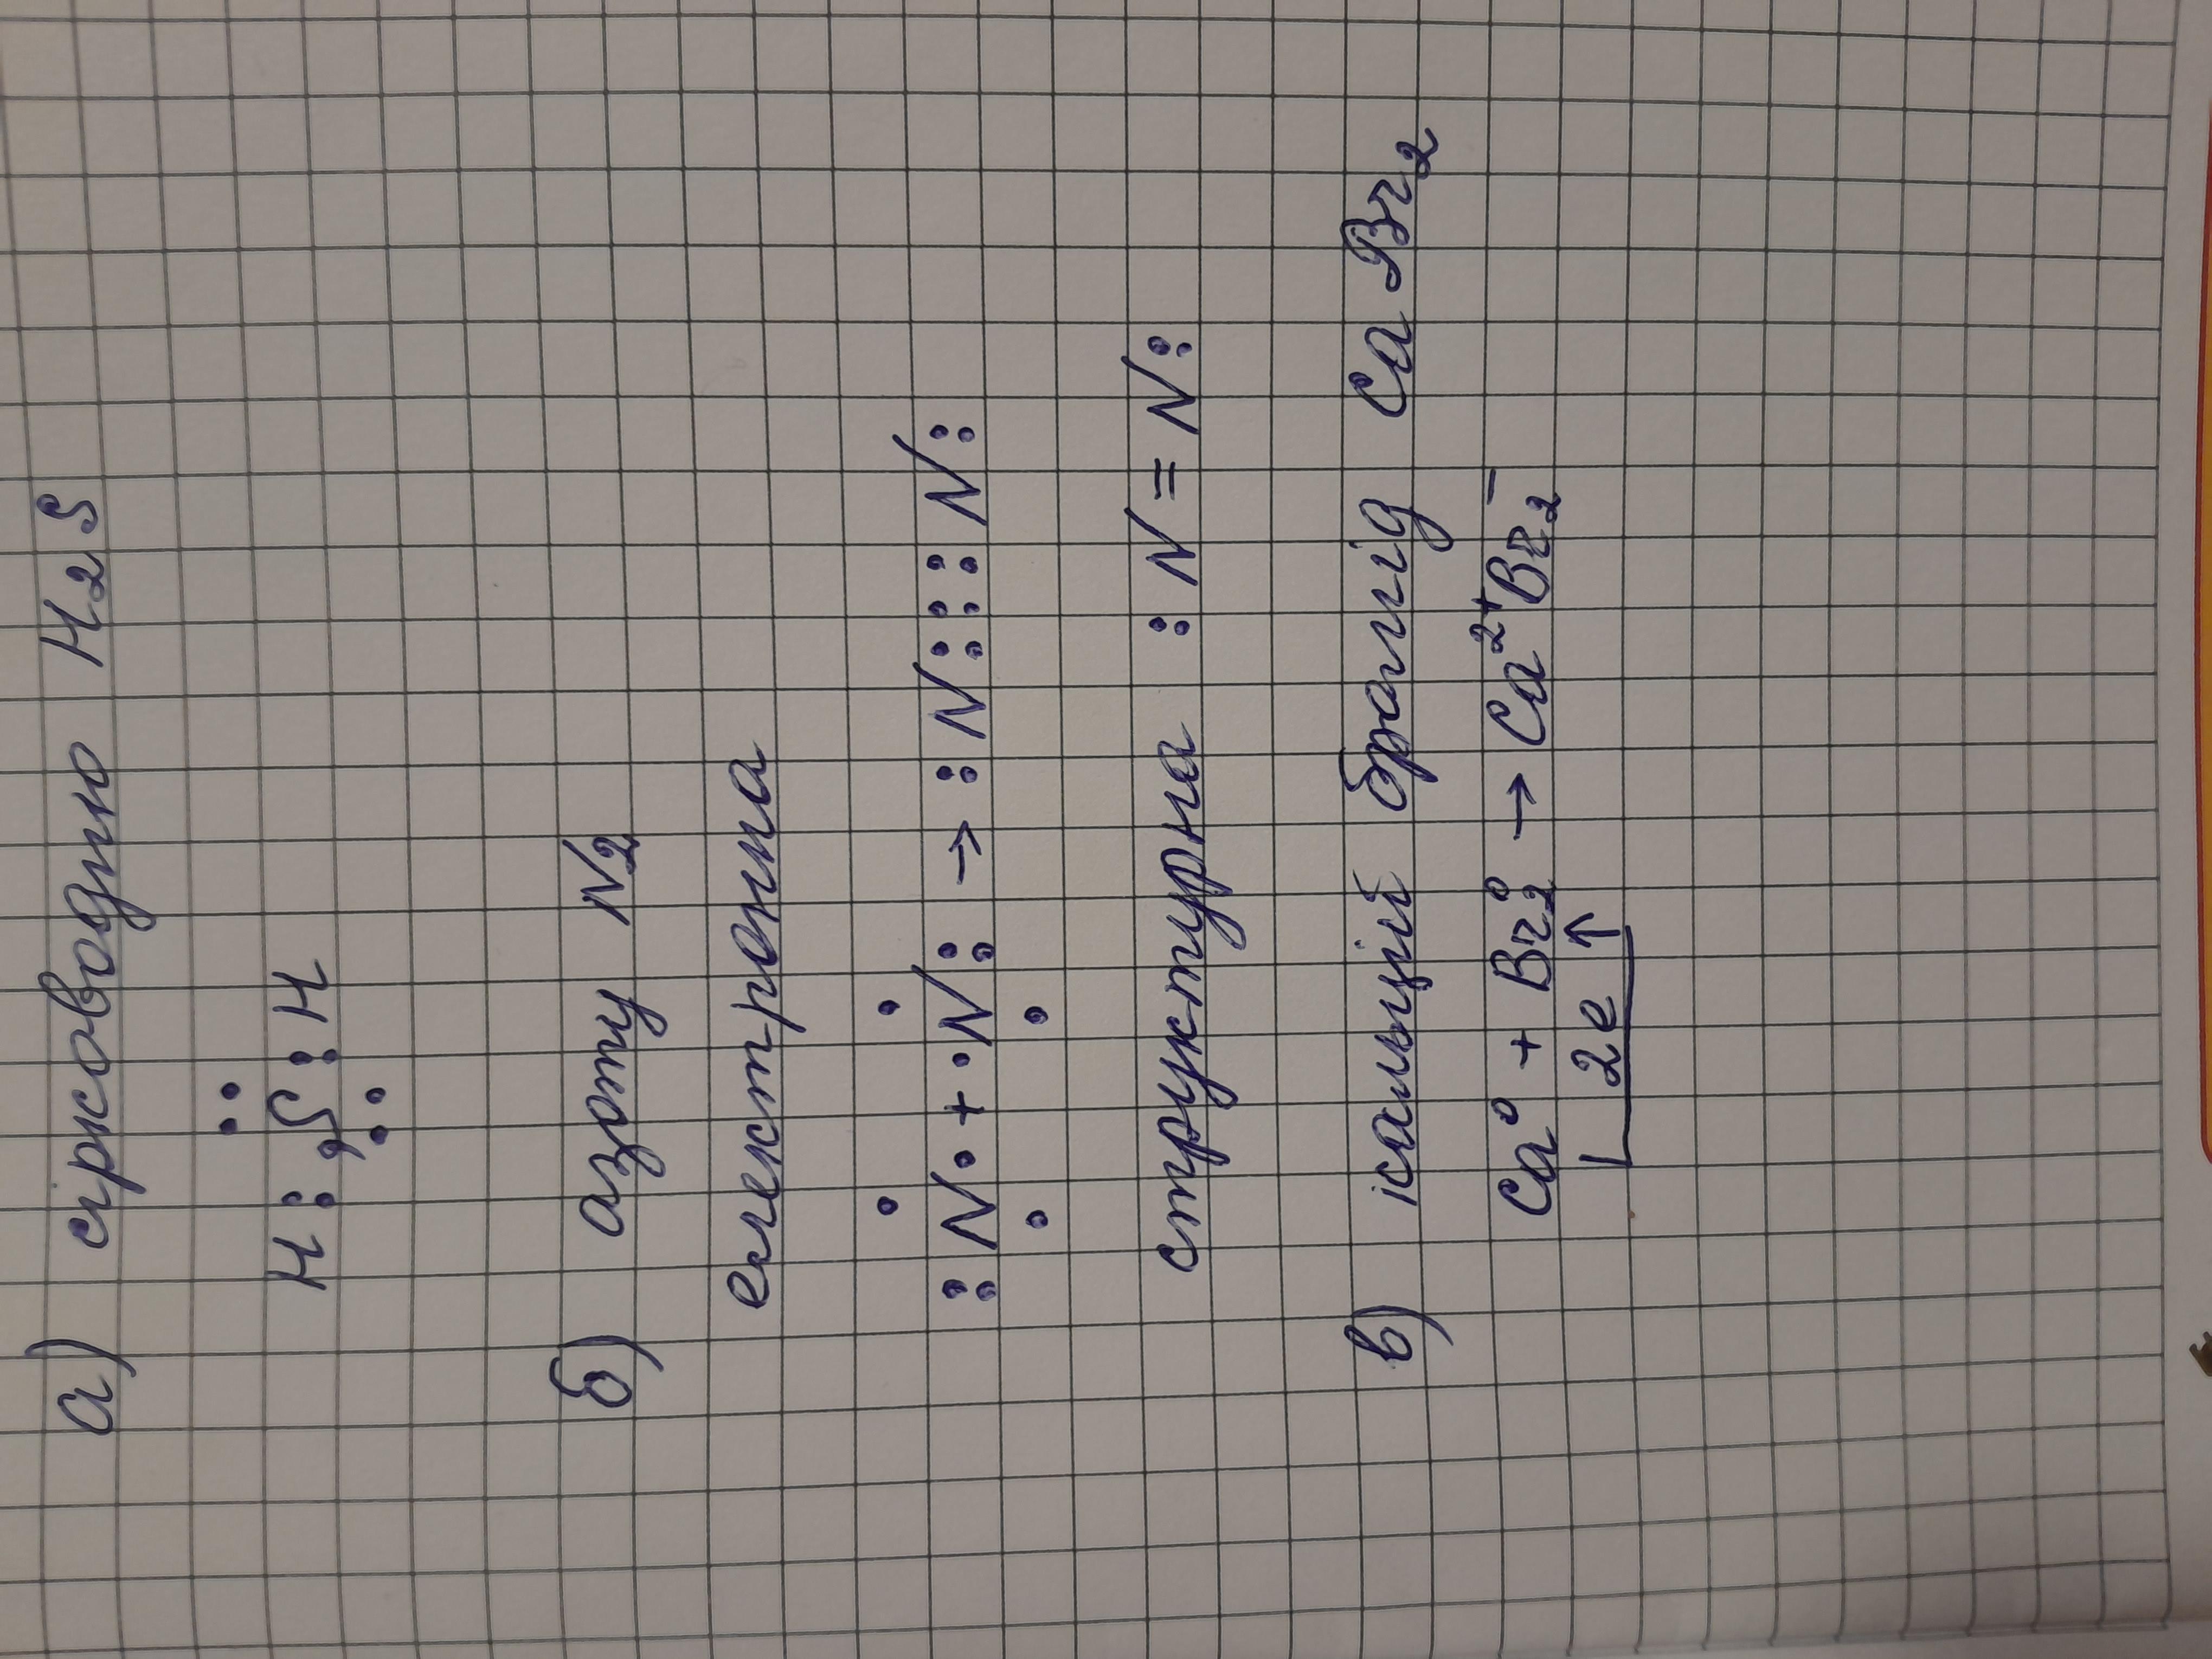 а) сірководню H₂S
H : S : H
б) азоту N₂
електронна
: N · + · N : → : N : : : N :
структурна : N = N :
в) кальцій бромід CaBr₂
Ca⁰ + Br₂⁰ → Ca²⁺Br₂⁻
2e